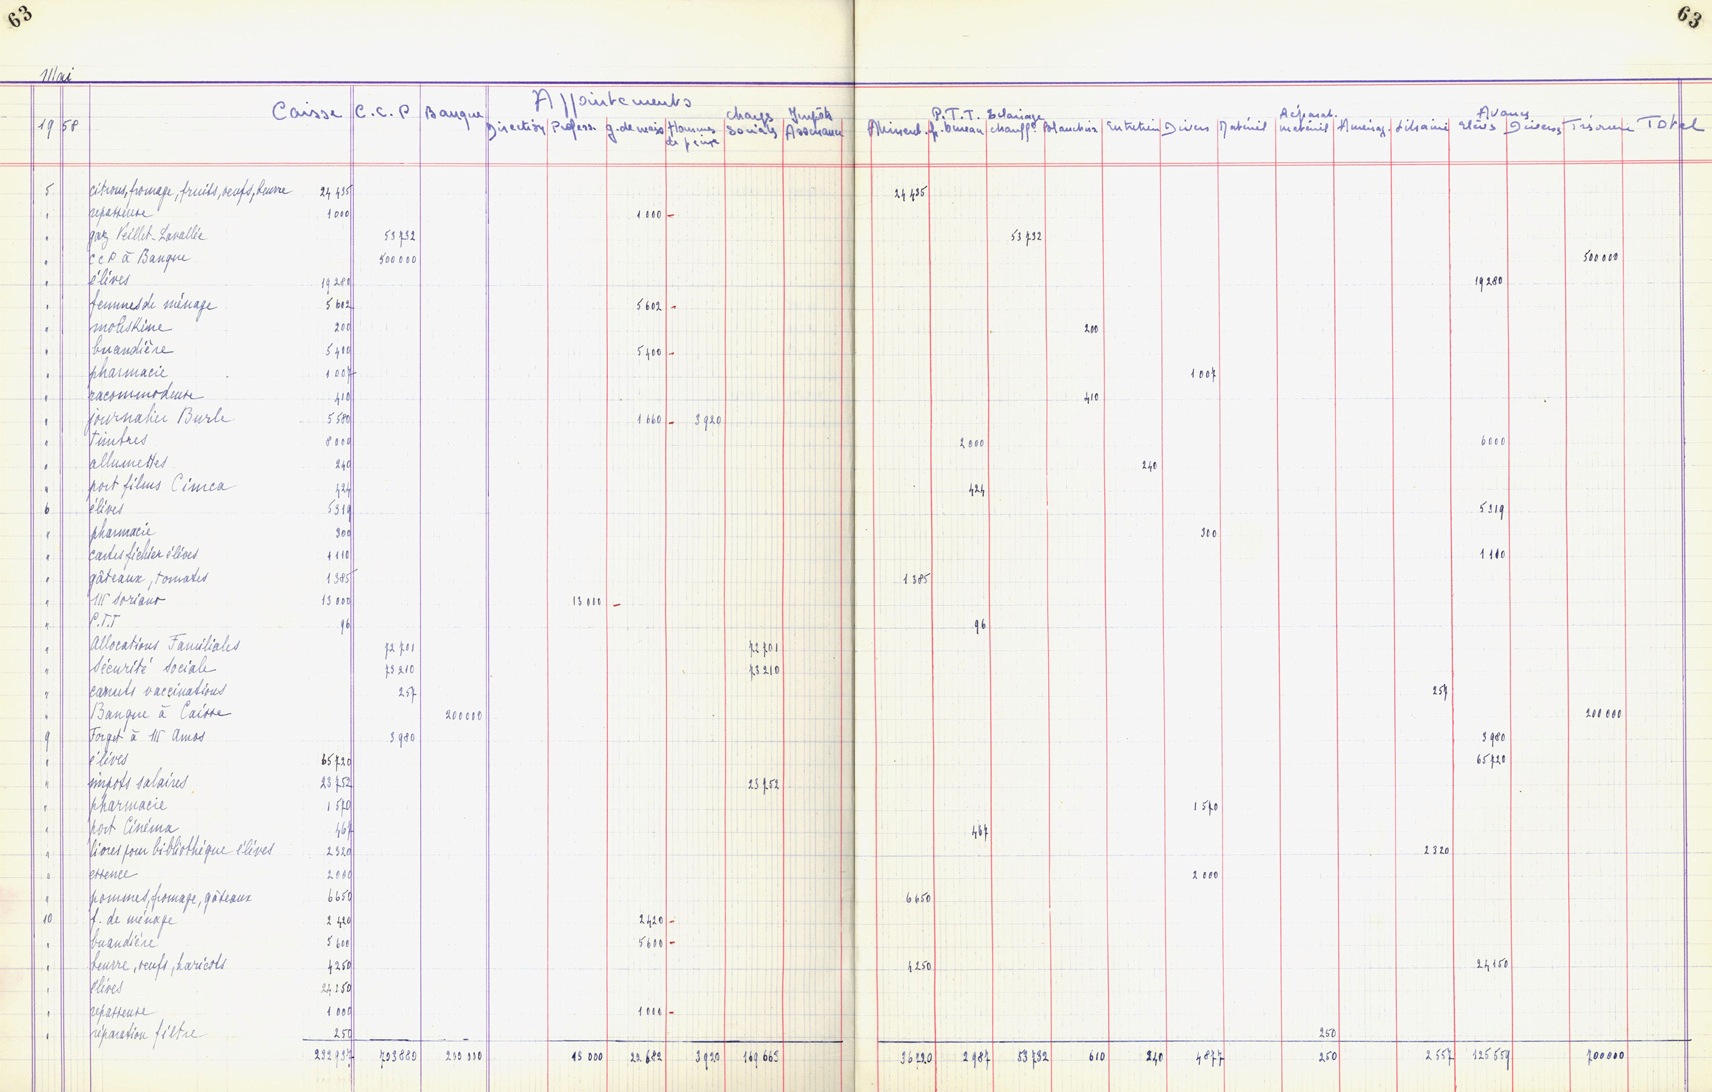 63
63
Mai
19 58
Caisse C.C.P Banque Appointements
Direction Profess. g. de mais. Hommes de peine charges sociales Impôts Assurances
Aliment. P.T.T. f. bureau Eclairage chauff. Blanchis. Entretien Divers Matériel Réparat. matériel Aménag. Librairie Avances Elèves Divers Trésorerie Total
5 citrons, fromage, fruits, oeufs, beurre 24 435 24 435
" repasseuse 1 000 1 000 -
" gaz Veillet-Lavallée 53 732 53 732
" CCP à Banque 500 000 500 000
" élèves 19 280 19 280
" femmes de ménage 5 602 5 602 -
" moleskine 200 200
" buandière 5 400 5 400 -
" pharmacie 1 007 1 007
" racommodeuse 410 410
" journalier Burle 5 580 1 660 - 3 920
" timbres 8 000 2 000 6000
" allumettes 240 240
" port films Cimca 424 424
6 élèves 5 319 5 319
" pharmacie 300 300
" cartes fichier élèves 1 110 1 110
" gâteaux, tomates 1 385 1 385
" Mr Soriano 13 000 13 000 -
" P.T.T 96 96
" Allocations Familiales 72 701 72 701
" Sécurité Sociale 73 210 73 210
" carnets vaccinations 257 257
" Banque à Caisse 200 000 200 000
9 Forget à Mr Amos 3 980 3 980
" élèves 65 720 65 720
" impots salaires 23 752 23 752
" pharmacie 1 570 1 570
" port Cinéma 467 467
" livres pour bibliothèque élèves 2 320 2 320
" essence 2 000 2 000
" pommes, fromage, gâteaux 6 650 6 650
10 f. de ménage 2 420 2 420 -
" buandière 5 600 5 600 -
" beurre, oeufs, haricots 4 250 4 250 24 150
" élèves 24 150
" repasseuse 1 000 1 000 -
" réparation filtre 250 250
232 937 703 880 200 000 13 000 22 682 3 920 169 663 36 720 2 987 53 732 610 240 4 877 250 2 577 125 559 700 000